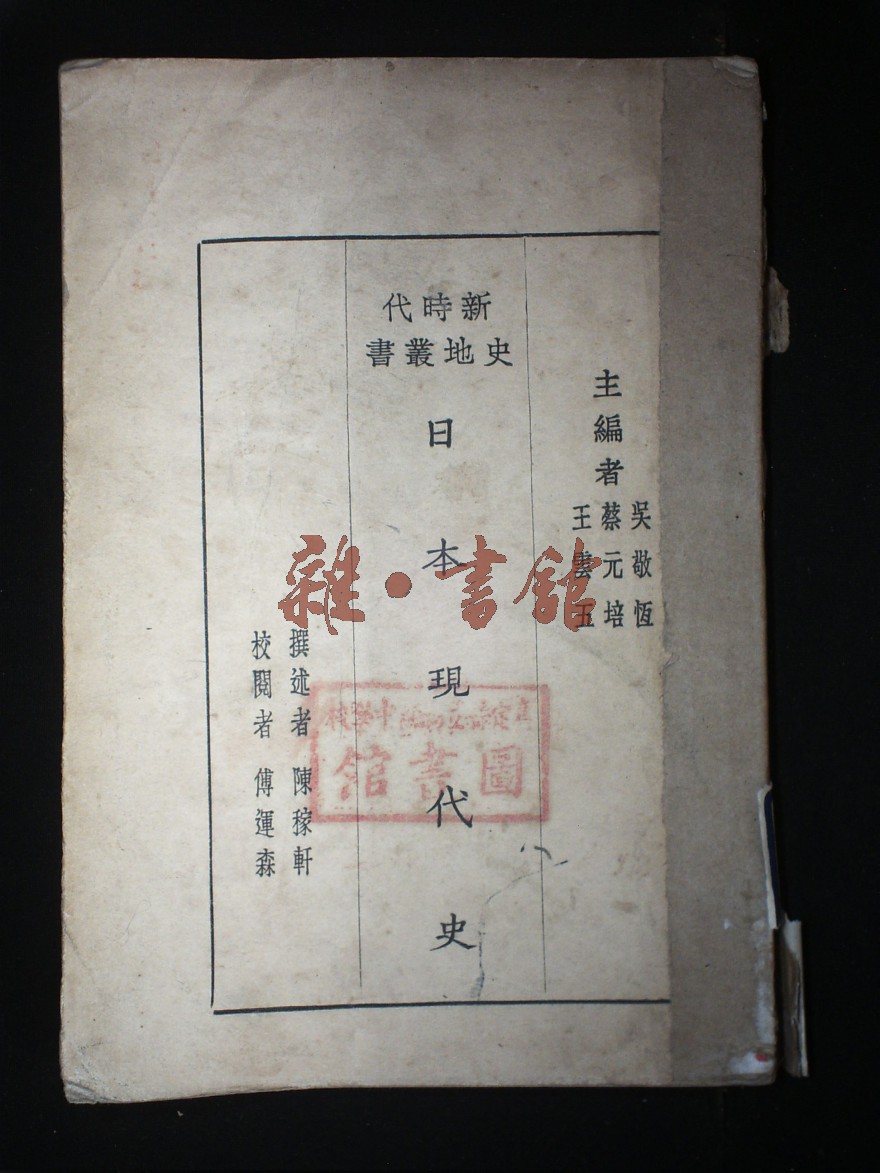 主編者
吳敬恆
蔡元培
王雲五
新時代
史地叢書
日本現代史
撰述者 陳稼軒
校閱者 傅運森
雜·書館
圖書館